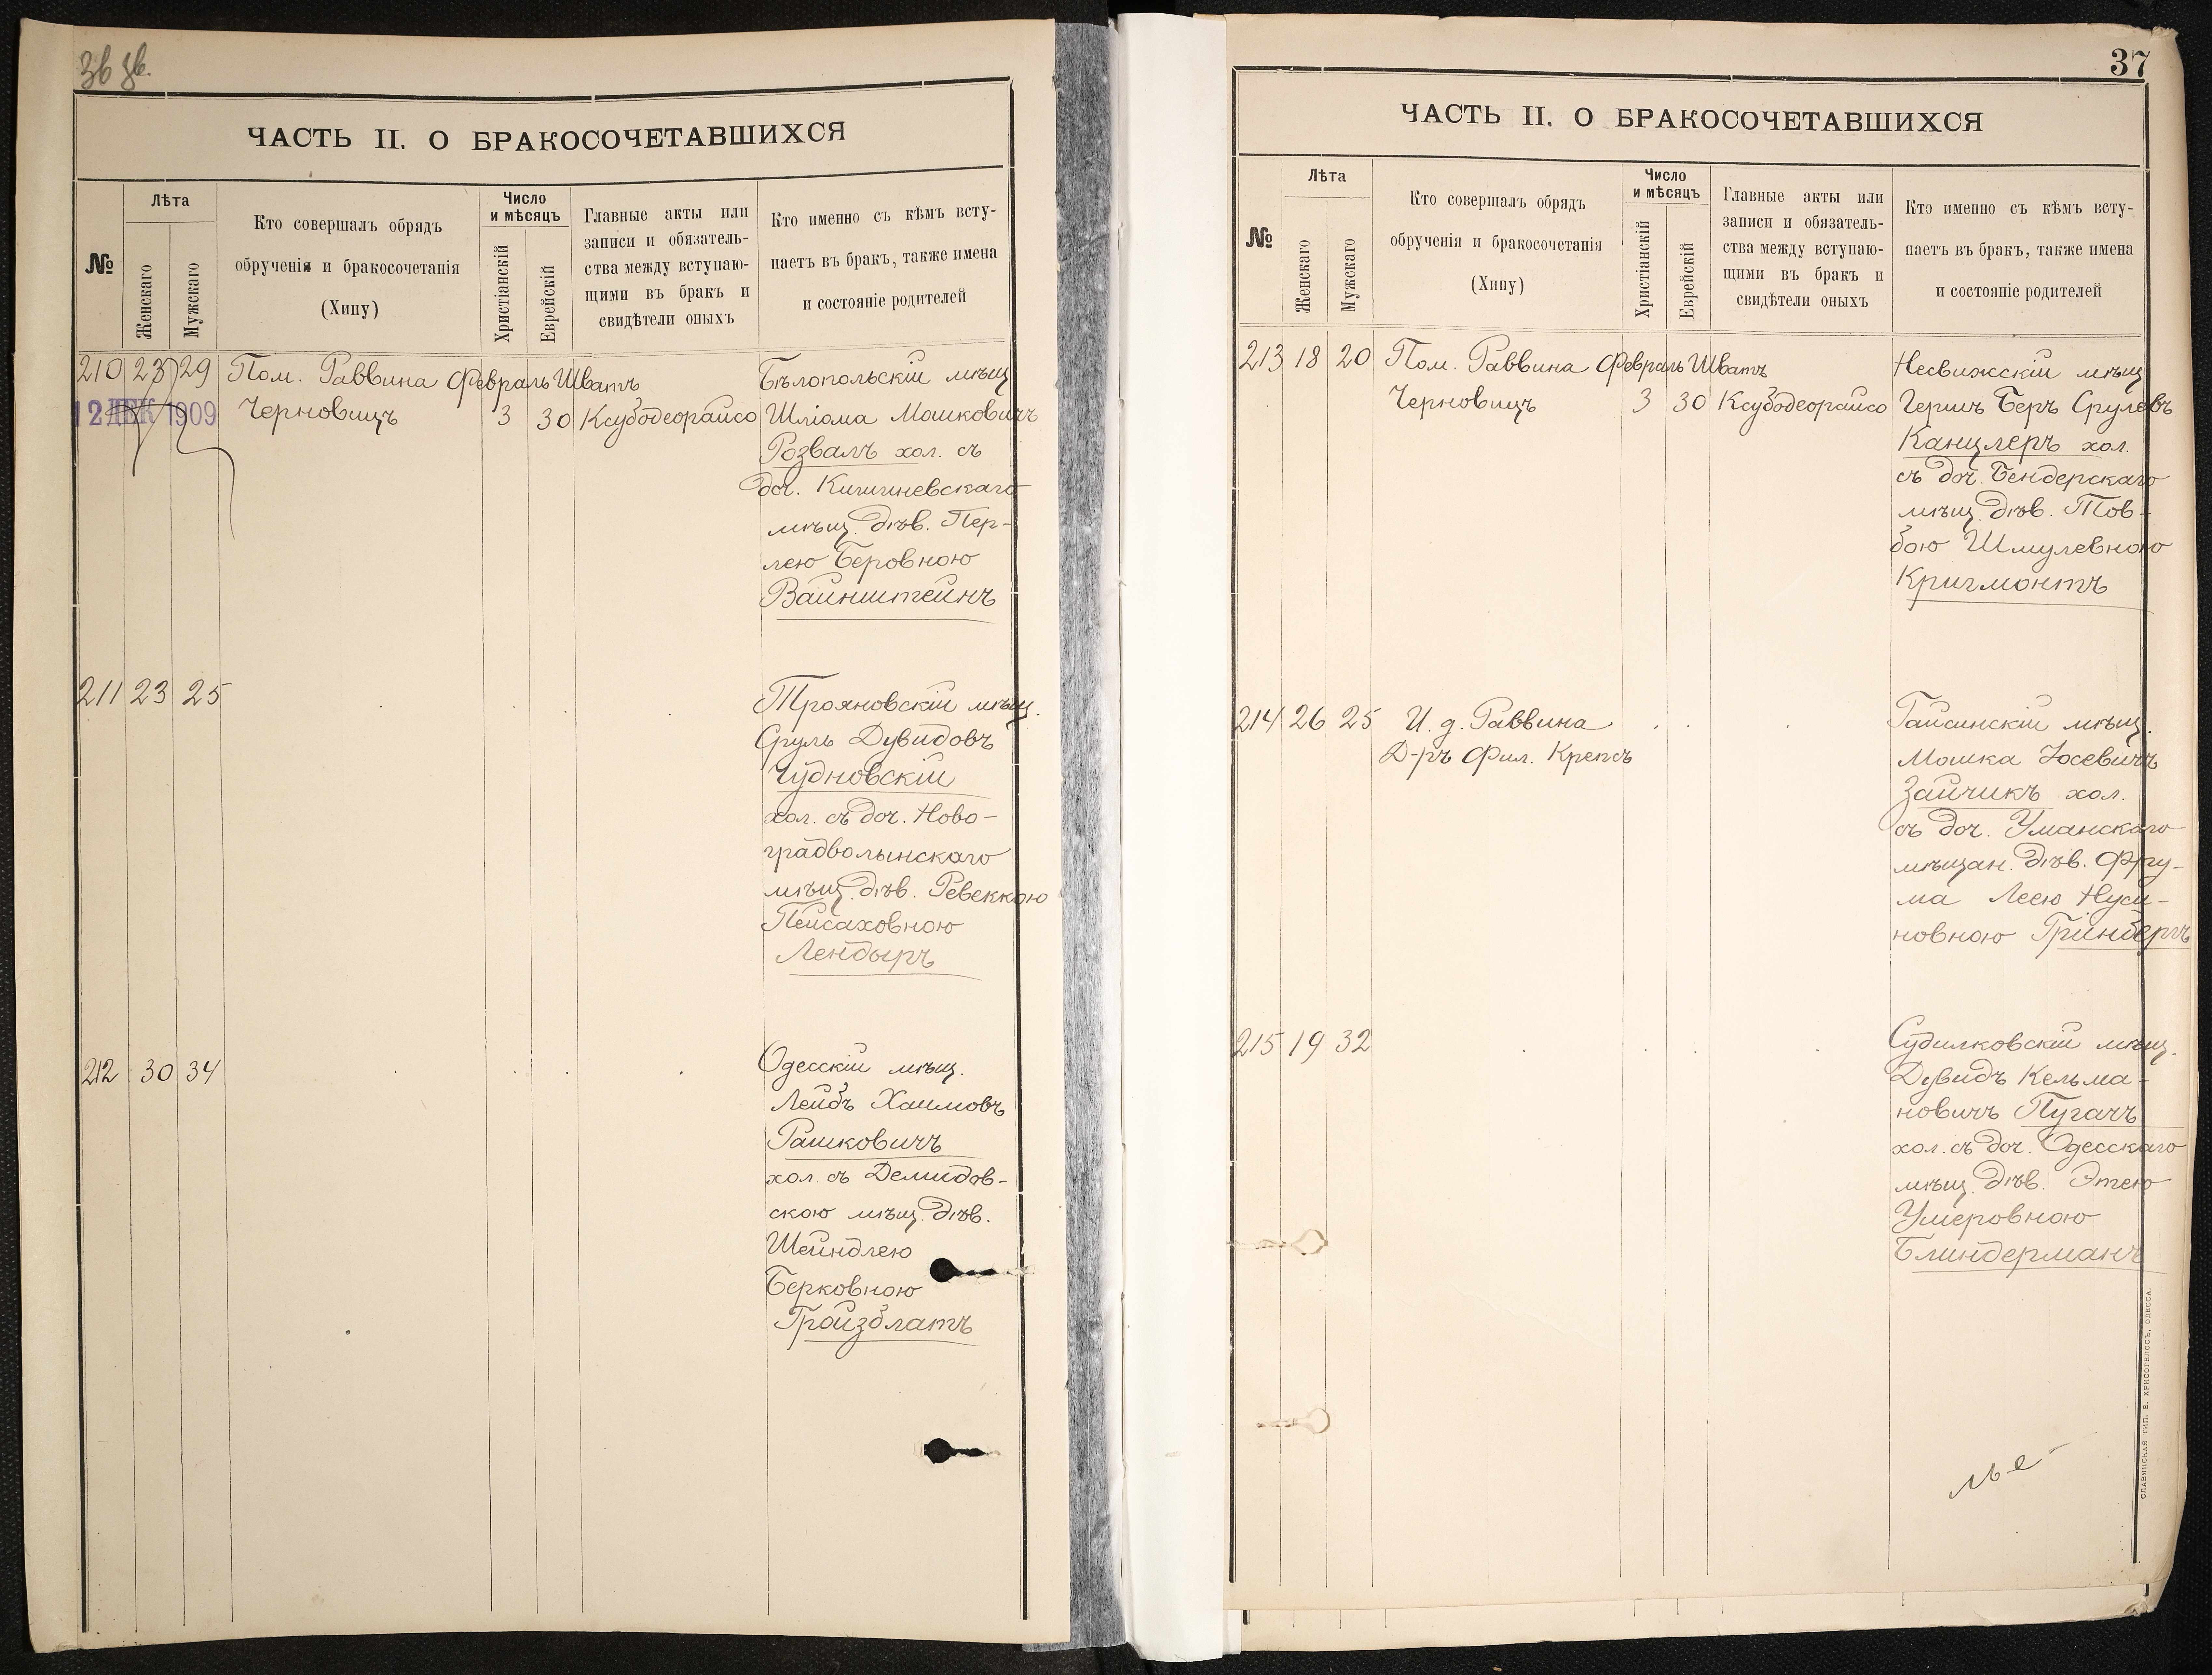 ЧАСТЬ II. О БРАКОСОЧЕТАВШИХСЯ
№
Лѣта
Женскаго
Мужскаго
Кто совершалъ обрядъ
обрученія и бракосочетанія
(Хипу)
Число
и мѣсяцъ
Христіанскій
Еврейскій
Главные акты или
записи и обязатель-
ства между вступаю-
щими въ бракъ и
свидѣтели оныхъ
Кто именно съ кѣмъ всту-
паетъ въ бракъ, также имена
и состояніе родителей
210 23 29 Пом. Раввина Февраль Шватъ Бѣлопольскій мѣщ
12 ДЕК 1909 Черновицъ 3 30 Ксубодеорайсо Шліома Мошковичъ
Розвалъ хол. съ
доч. Кишиневскаго
мѣщ. дѣв. Пер-
лею Беровною
Вайнштейнъ
211 23 25 Трояновскій мѣщ.
Сруль Дувидовъ
Чудновскій
хол. съ доч. Ново-
градволынскаго
мѣщ. дѣв. Ревеккою
Пейсаховною
Лендыръ
212 30 34 Одесскій мѣщ.
Лейбъ Хаимовъ
Рашковичъ
хол. съ Демидов-
скою мѣщ. дѣв.
Шейндлею
Берковною
Гройзблатъ
37
ЧАСТЬ II. О БРАКОСОЧЕТАВШИХСЯ
№
Лѣта
Женскаго
Мужскаго
Кто совершалъ обрядъ
обрученія и бракосочетанія
(Хипу)
Число
и мѣсяцъ
Христіанскій
Еврейскій
Главные акты или
записи и обязатель-
ства между вступаю-
щими въ бракъ и
свидѣтели оныхъ
Кто именно съ кѣмъ всту-
паетъ въ бракъ, также имена
и состояніе родителей
213 18 20 Пом. Раввина Февраль Шватъ Несвижскій мѣщ
Черновицъ 3 30 Ксубодеорайсо Гершъ Беръ Срулевъ
Канцлеръ хол.
съ доч. Бендерскаго
мѣщ. дѣв. Тов-
бою Шмулевною
Кригмонтъ
214 26 25 И. д. Раввина Гайсинскій мѣщ.
Д-ръ Фил. Крепсъ Мошка Іосевичъ
Зайчикъ хол.
съ доч. Уманскаго
мѣщан. дѣв. Фру-
ма Леею Нуси-
новною Гринбергъ
215 19 32 Судилковскій мѣщ.
Дувидъ Кельма-
новичъ Пугачъ
хол. съ доч. Одесскаго
мѣщ. дѣв. Этею
Умеровною
Блиндерманъ
СЛАВЯНСКАЯ ТИП. Е. ХРИСОГЕЛОСЪ, ОДЕССА.